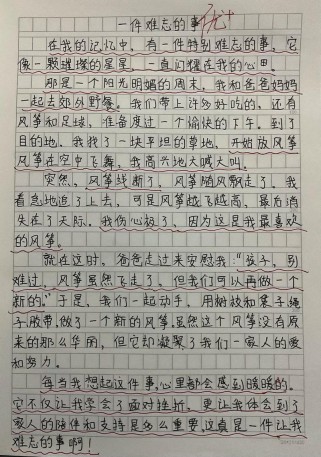 一件难忘的事 优+
在我的记忆中，有一件特别难忘的事，它
像一颗璀璨的星星，一直闪耀在我的心田。
那是一个阳光明媚的周末，我和爸爸妈妈
一起去郊外野餐。我们带上许多好吃的，还有
风筝和足球，准备度过一个愉快的下午。到了
目的地，我找了一块平坦的草地，开始放风筝
风筝在空中飞舞，我高兴地大喊大叫。
突然，风筝线断了，风筝随风飘走了。我
着急地追了上去，可是风筝越飞越高，最后消
失在了天际。我伤心极了，因为这是我最喜欢
的风筝。
就在这时，爸爸走过来安慰我：“孩子，别
难过，风筝虽然飞走了，但我们可以再做一个
新的。”于是，我们一起动手，用树枝和袋子绳
子胶带，做了一个新的风筝。虽然这个风筝没有原
来的那么华丽，但它却凝聚了我们一家人的爱
和努力。
每当我想起这件事，心里都会感到暖暖的。
它不仅让我学会了面对挫折，更让我体会到了
家人的陪伴和支持是多么重要。这真是一件让我
难忘的事啊！